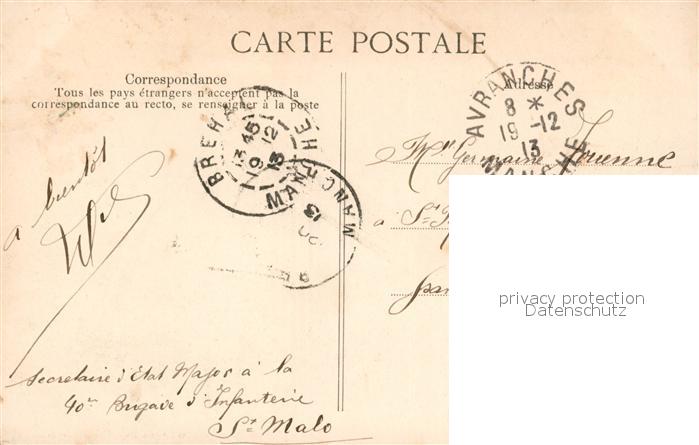 CARTE POSTALE
Correspondance
Tous les pays étrangers n'acceptent pas la
correspondance au recto, se renseigner à la poste
Adresse
AVRANCHES
8 *
19 -12
13
MANCHE
BREHAL
13 45
9 12
13
MANCHE
MANCHE
13
à bientôt
Mlle Germaine
à St
privacy protection
Datenschutz
secretaire d'Etat Major à la
40me Brigade d'Infanterie
St Malo